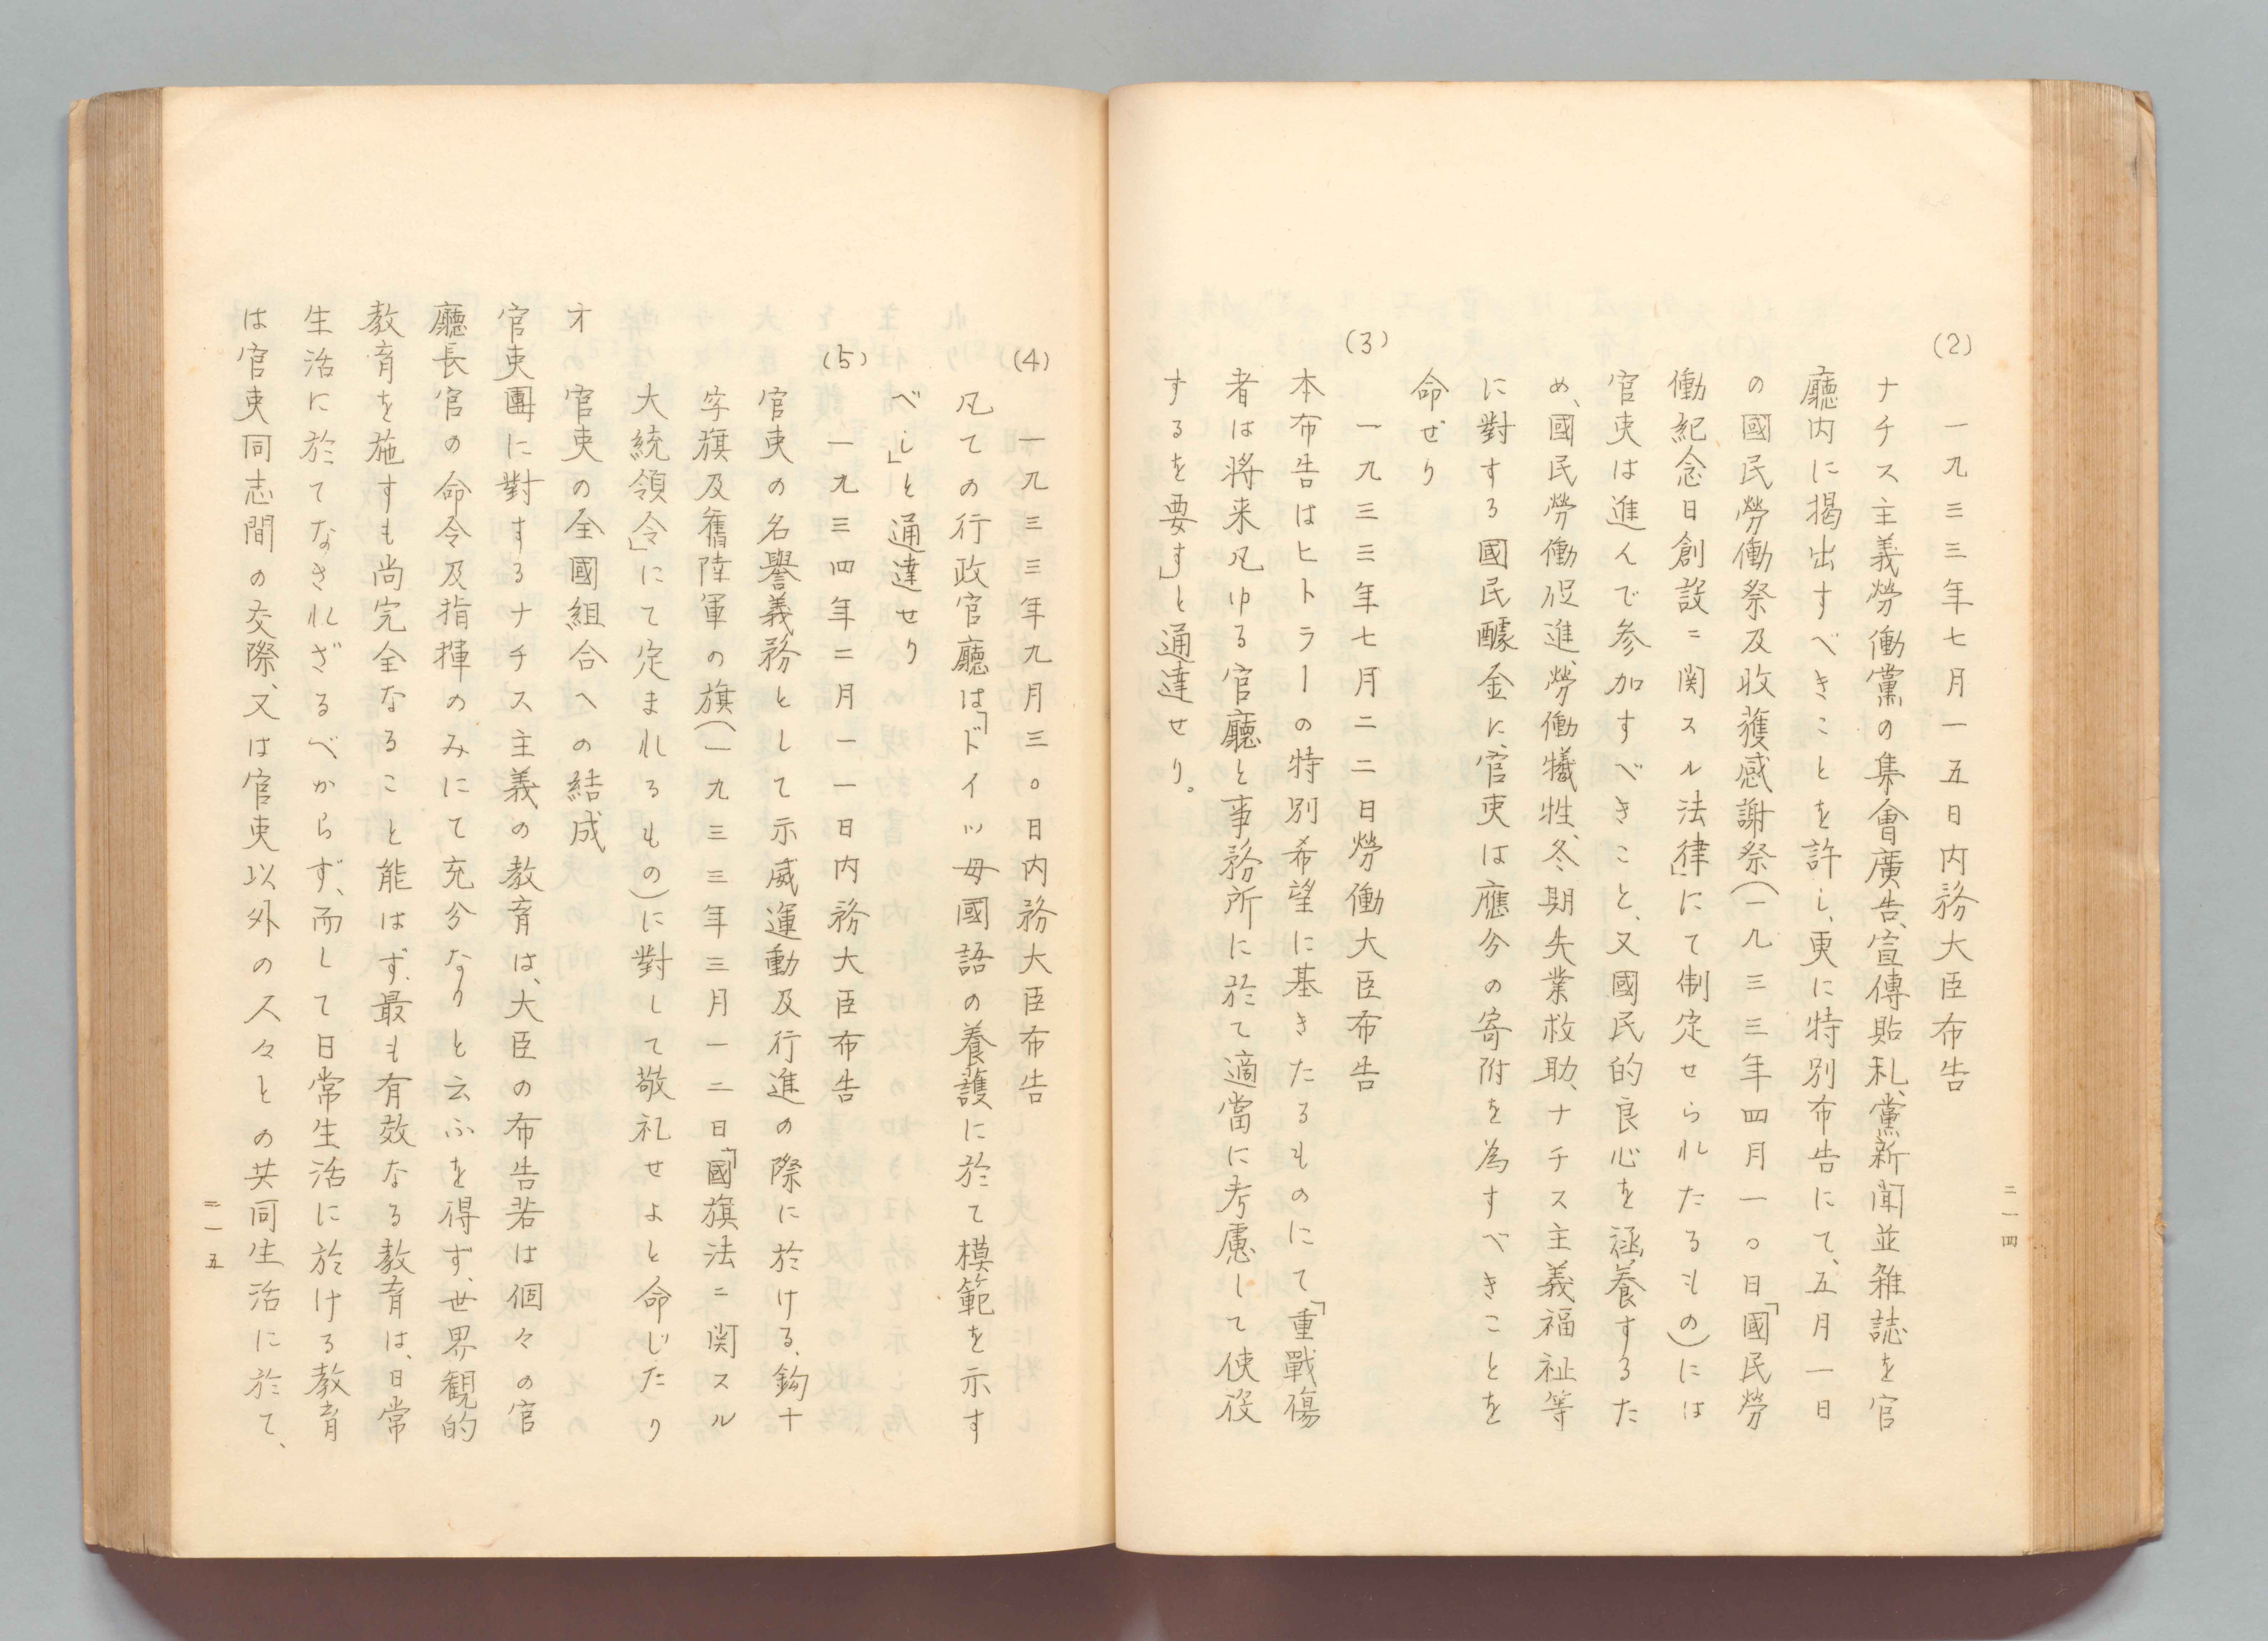 (2) 一九三三年七月一五日内務大臣布告
ナチス主義勞働黨の集會廣告、宣傳貼札、黨新聞並雑誌を官
廳内に掲出すべきことを許し、更に特別布告にて、五月一日
の國民勞働祭及收獲感謝祭(一九三三年四月一〇日「國民勞
働紀念日創設ニ関スル法律」にて制定せられたるもの)には
官吏は進んで参加すべきこと、又國民的良心を涵養するた
め、國民勞働促進、勞働犠牲、冬期失業救助、ナチス主義福祉等
に對する國民醵金に、官吏は應分の寄附を為すべきことを
命ぜり
(3) 一九三三年七月二二日勞働大臣布告
本布告はヒトラーの特別希望に基きたるものにて「重戰傷
者は将来凡ゆる官廳と事務所に於て適當に考慮して使役
するを要す」と通達せり。
二一四
(4) 一九三三年九月三〇日内務大臣布告
凡ての行政官廳は「ドイツ母國語の養護に於て模範を示す
べし」と通達せり
(5) 一九三四年二月一一日内務大臣布告
官吏の名譽義務として示威運動及行進の際に於ける、鈎十
字旗及舊陸軍の旗(一九三三年三月一二日「國旗法ニ関スル
大統領令」にて定まれるもの)に對して敬礼せよと命じたり
オ 官吏の全國組合への結成
官吏團に對するナチス主義の教育は、大臣の布告若は個々の官
廳長官の命令及指揮のみにて充分なりと云ふを得ず、世界観的
教育を施すも尚完全なること能はず、最も有效なる教育は、日常
生活に於てなされざるべからず、而して日常生活に於ける教育
は官吏同志間の交際、又は官吏以外の人々との共同生活に於て、
二一五